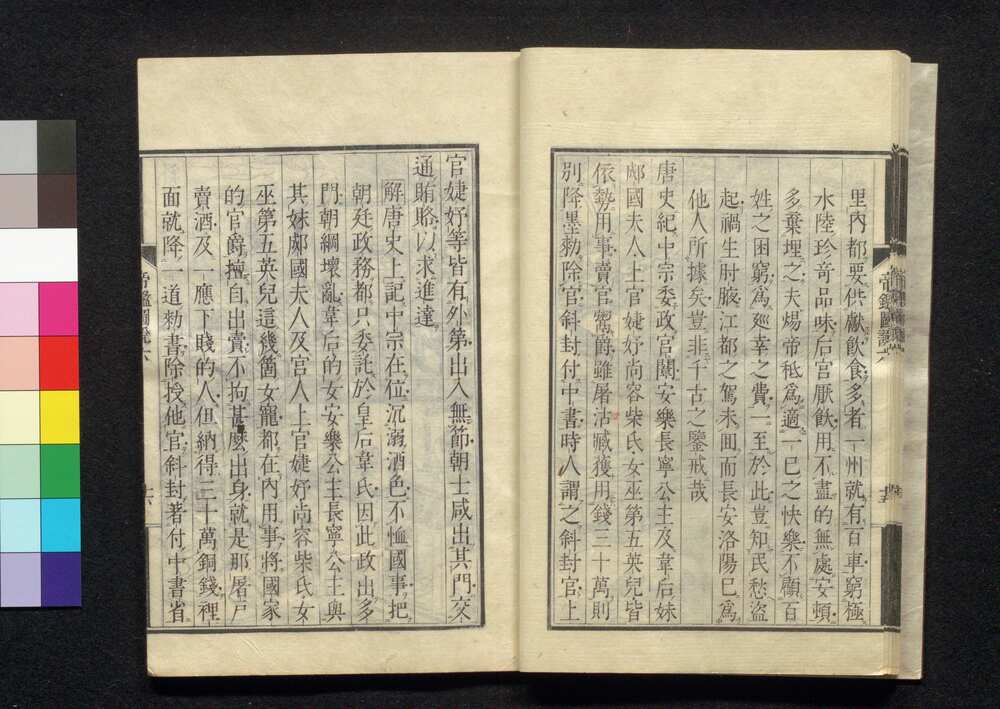 里內都要供獻飲食多者一州就有百車窮極
水陸珍奇品味后宮厭飲用不盡的無處安頓
多棄埋之夫煬帝秪爲適一己之快樂不顧百
姓之困窮爲廵幸之費一至於此豈知民愁盜
起禍生肘腋江都之駕未囬而長安洛陽已爲
他人所據矣豈非千古之鑒戒哉
唐史紀中宗委政宮闈安樂長寧公主及韋后妹
郕國夫人上官婕妤尚容柴氏女巫第五英兒皆
依勢用事賣官鬻爵雖屠沽臧獲用錢三十萬則
別降墨勑除官斜封付中書時人謂之斜封官上
官婕妤等皆有外第出入無節朝士咸出其門交
通賄賂以求進達
解唐史上記中宗在位沉溺酒色不恤國事把
朝廷政務都只委託於皇后韋氏因此政出多
門朝綱壞亂韋后的女安樂公主長寧公主與
其妹郕國夫人及官人上官婕妤尚容柴氏女
巫第五英兒這幾箇女寵都在內用事將國家
的官爵擅自出賣不拘甚麽出身就是那屠戶
賣酒及一應下賤的人但納得三十萬銅錢裡
面就降一道勑書除授他官斜封著付中書省
帝鑑圖說六